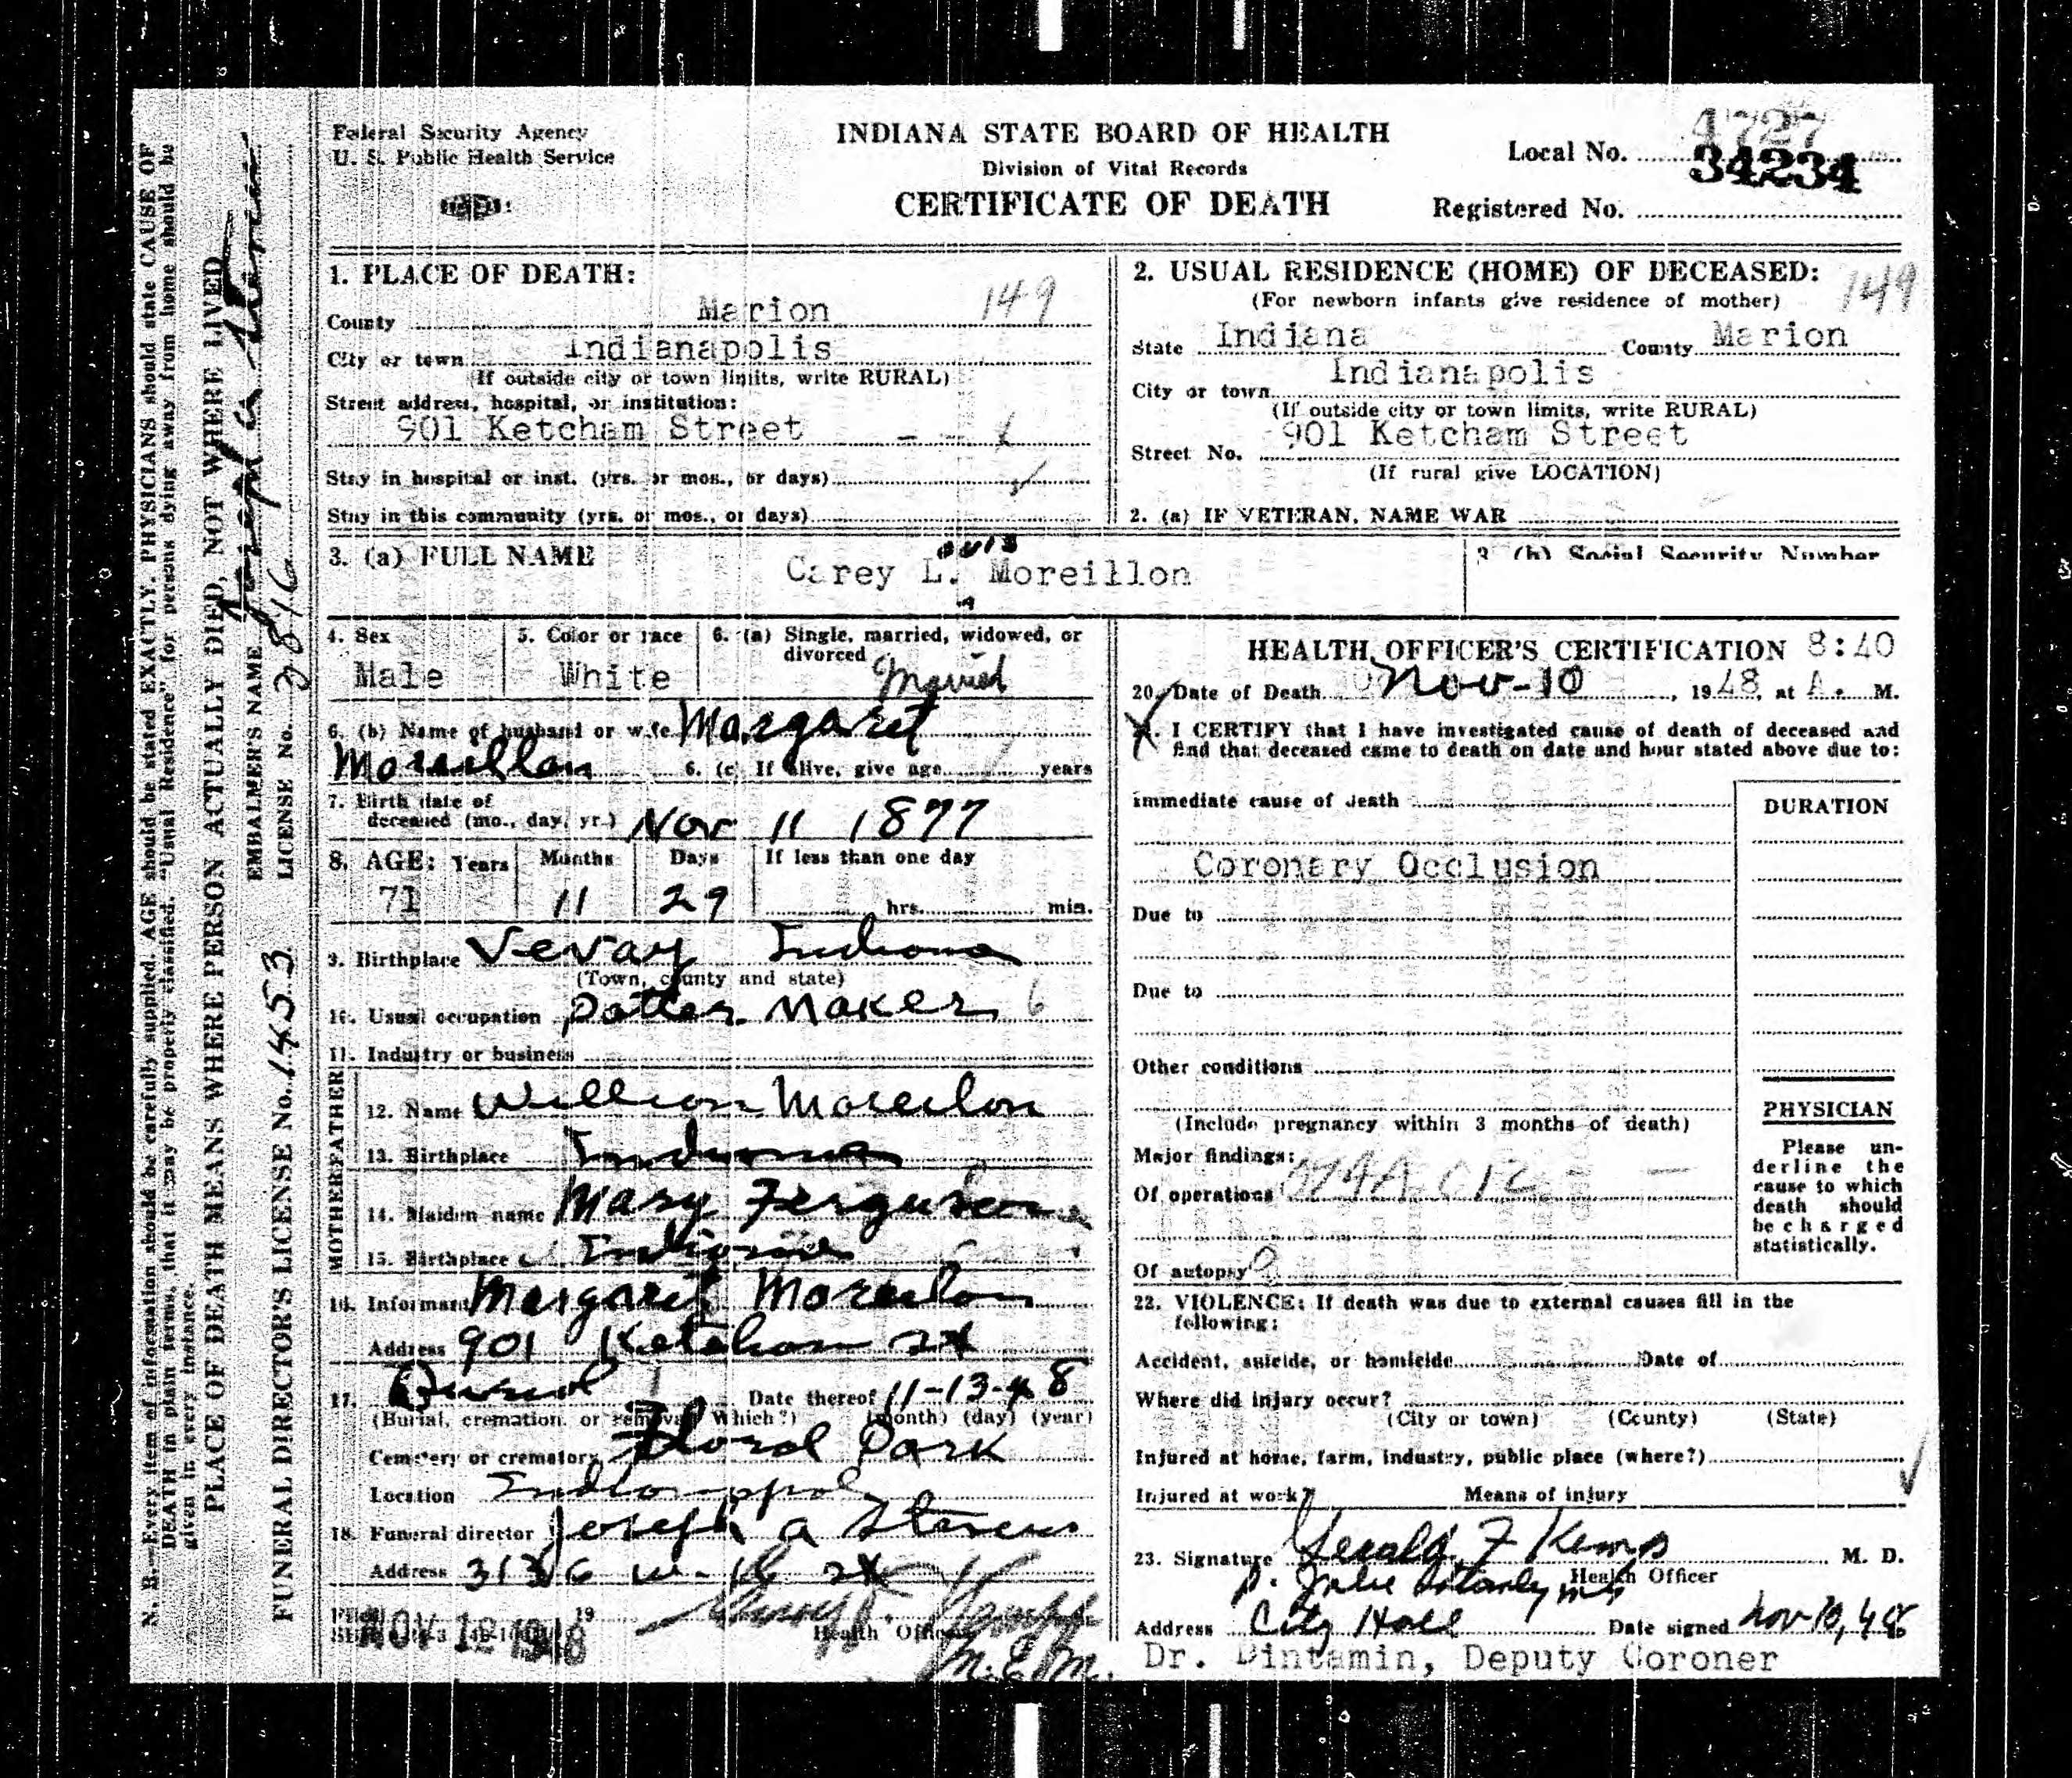 Federal Security Agency
U. S. Public Health Service
INDIANA STATE BOARD OF HEALTH
Division of Vital Records
CERTIFICATE OF DEATH
4727
Local No.
34234
Registered No.
1. PLACE OF DEATH:
County Marion 149
City or town Indianapolis
(If outside city or town limits, write RURAL)
Street address, hospital, or institution:
901 Ketcham Street
Stay in hospital or inst. (yrs. or mos., or days)
Stay in this community (yrs. or mos., or days)
2. USUAL RESIDENCE (HOME) OF DECEASED: 149
(For newborn infants give residence of mother)
State Indiana County Marion
City or town Indianapolis
(If outside city or town limits, write RURAL)
Street No. 901 Ketcham Street
(If rural give LOCATION)
2. (a) IF VETERAN, NAME WAR
3. (a) FULL NAME Carey L. Moreillon
3 (b) Social Security Number
4. Sex Male
5. Color or race White
6. (a) Single, married, widowed, or divorced Married
6. (b) Name of husband or wife Margaret
Moreillon 6. (c) If alive, give age years
7. Birth date of
deceased (mo., day, yr.) Nov 11 1877
8. AGE: Years Months Days If less than one day
71 11 29 hrs. min.
9. Birthplace Vevay Indiana
(Town, county and state)
10. Usual occupation Patter Maker 6
11. Industry or business
FATHER
12. Name William Moreilon
13. Birthplace Indiana
MOTHER
14. Maiden name Mary Ferguson
15. Birthplace Indiana
16. Informant Margaret Moreilon
Address 901 Ketcham St
17. Burial Date thereof 11-13-48
(Burial, cremation, or removal Which?) (month) (day) (year)
Cemetery or crematory Floral Park
Location Indianapolis
18. Funeral director Joseph A Stevens
Address 3136 W. 16 St
Filed NOV 12 1948 19
Health Officer
HEALTH OFFICER'S CERTIFICATION 8:40
20. Date of Death Nov-10, 1948, at A. M.
I CERTIFY that I have investigated cause of death of deceased and
find that deceased came to death on date and hour stated above due to:
Immediate cause of death
DURATION
Coronary Occlusion
Due to
Due to
Other conditions
(Include pregnancy within 3 months of death)
Major findings:
Of operations
Of autopsy
PHYSICIAN
Please un-
derline the
cause to which
death should
be charged
statistically.
22. VIOLENCE: If death was due to external causes fill in the
following:
Accident, suicide, or homicide Date of
Where did injury occur?
(City or town) (County) (State)
Injured at home, farm, industry, public place (where?)
Injured at work? Means of injury
23. Signature Gerald F Kemp M. D.
Health Officer
Address City Hall Date signed Nov-10, 48
Dr. Bintamin, Deputy Coroner
N. B.—Every item of information should be carefully supplied. AGE should be stated EXACTLY. PHYSICIANS should state CAUSE OF
DEATH in plain terms, that it may be properly classified. "Usual Residence" for persons dying away from home should be
given in every instance.
PLACE OF DEATH MEANS WHERE PERSON ACTUALLY DIED, NOT WHERE LIVED
EMBALMER'S NAME Joseph A Stevens
FUNERAL DIRECTOR'S LICENSE No. 1453 LICENSE No. 2816